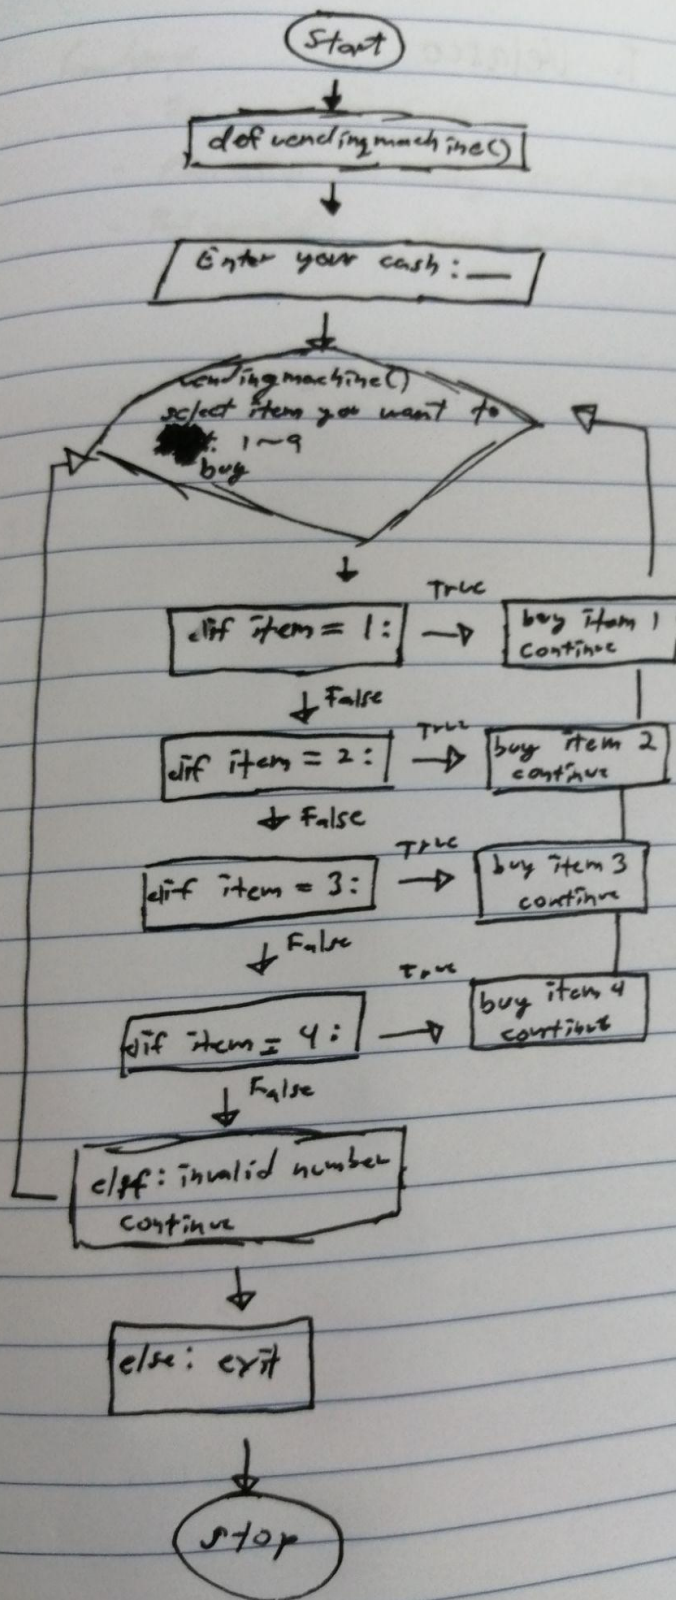 Start
def vendingmachine()
Enter your cash: __
vendingmachine()
select item you want to
: 1~9
buy
elif item = 1:
True
buy item 1
continue
False
elif item = 2:
True
buy item 2
continue
False
elif item = 3:
True
buy item 3
continue
False
elif item = 4:
True
buy item 4
continue
False
elif: invalid number
continue
else: exit
stop